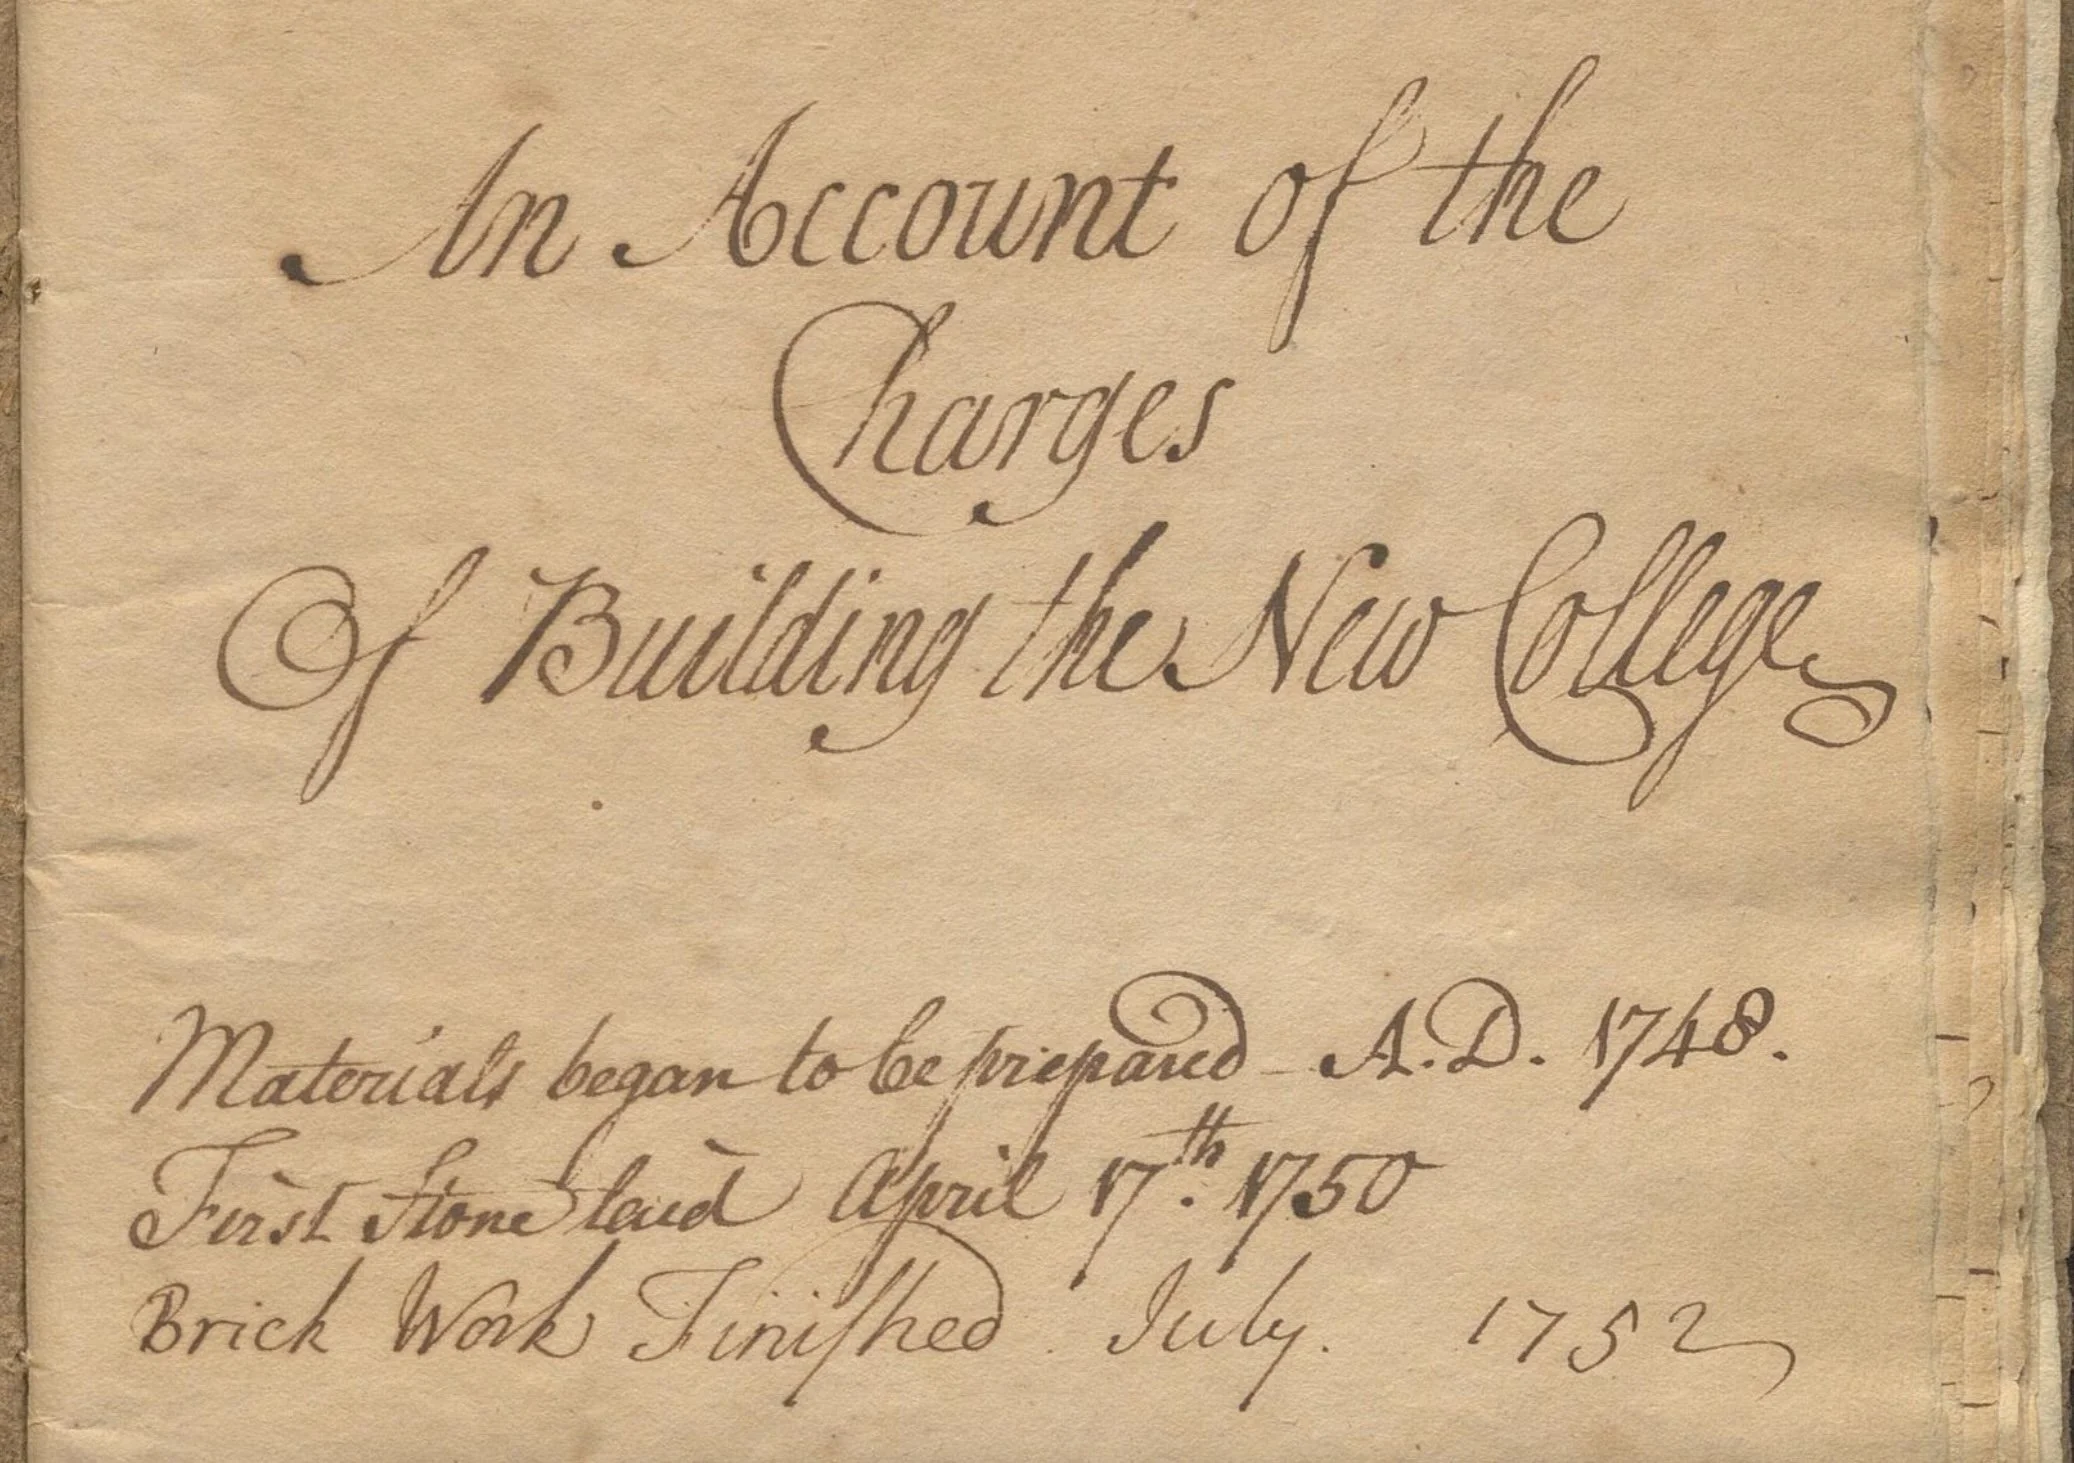 An Account of the
Charges
Of Building the New College
Materials began to be prepared – A.D. 1748.
First Stone laid April 17th. 1750
Brick Work Finiſhed July. 1752